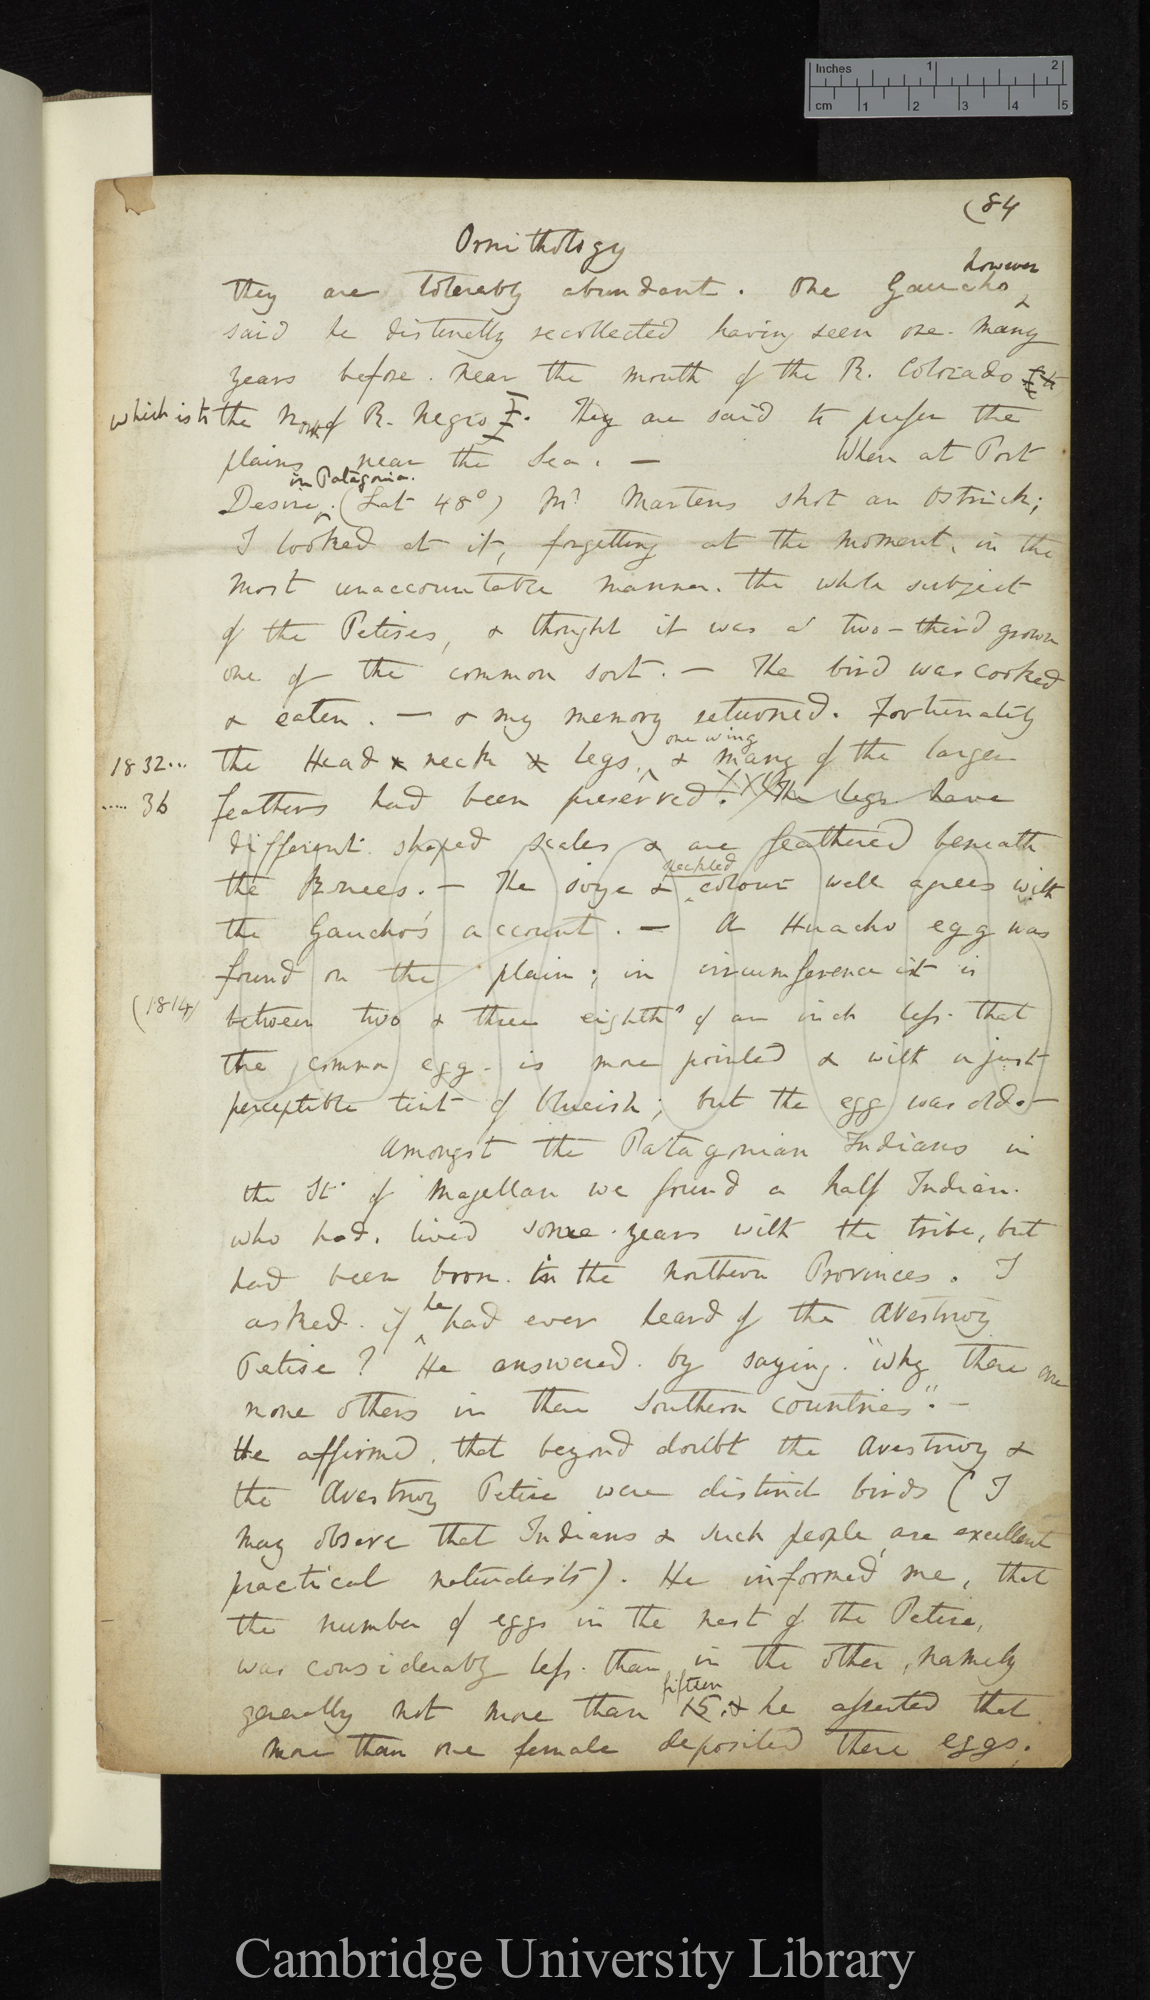 Inches 1 2
cm 1 2 3 4 5
(84
Ornithology
they are tolerably abundant. One Gaucho however
said he distinctly recollected having seen one many
years before near the mouth of the R. Colorado
which is to the North of R. Negro. They are said to prefer the
plains near the Sea. — When at Port
Desire in Patagonia. (Lat 48°) Mr Martens shot an Ostrich;
I looked at it, forgetting at the moment, in the
most unaccountable manner, the whole subject
of the Petises, & thought it was a two-third grown
one of the common sort. — The bird was cooked
& eaten. — & my memory returned. Fortunately
1832... the Head & neck & legs, one wing & many of the larger
..... 36 feathers had been preserved. The legs have
different shaped scales & are feathered beneath
the Knees. — The size & speckled colour well agrees with
the Gaucho's account. — A Huacho egg was
found on the plain; in circumference it is
(1814) between two & three eighths of an inch less that
the common egg. is more pointed & with a just
perceptible tint of blueish; but the egg was old. —
Amongst the Patagonian Indians in
the St. of Magellan we found a half Indian.
who had. lived some years with the tribe, but
had been born in the northern Provinces. I
asked. if he had ever heard of the Avestruz
Petise? He answered. by saying. "why there are
none others in these Southern countries". —
He affirmed, that beyond doubt the Avestruz &
the Avestruz Petise were distinct birds (I
may observe that Indians & such people are excellent
practical naturalists). He informed me, that
the number of eggs in the nest of the Petise,
was considerably less. than in the other, namely
generally not more than 15 fifteen. & he asserted that
more than one female deposited there eggs.
Cambridge University Library